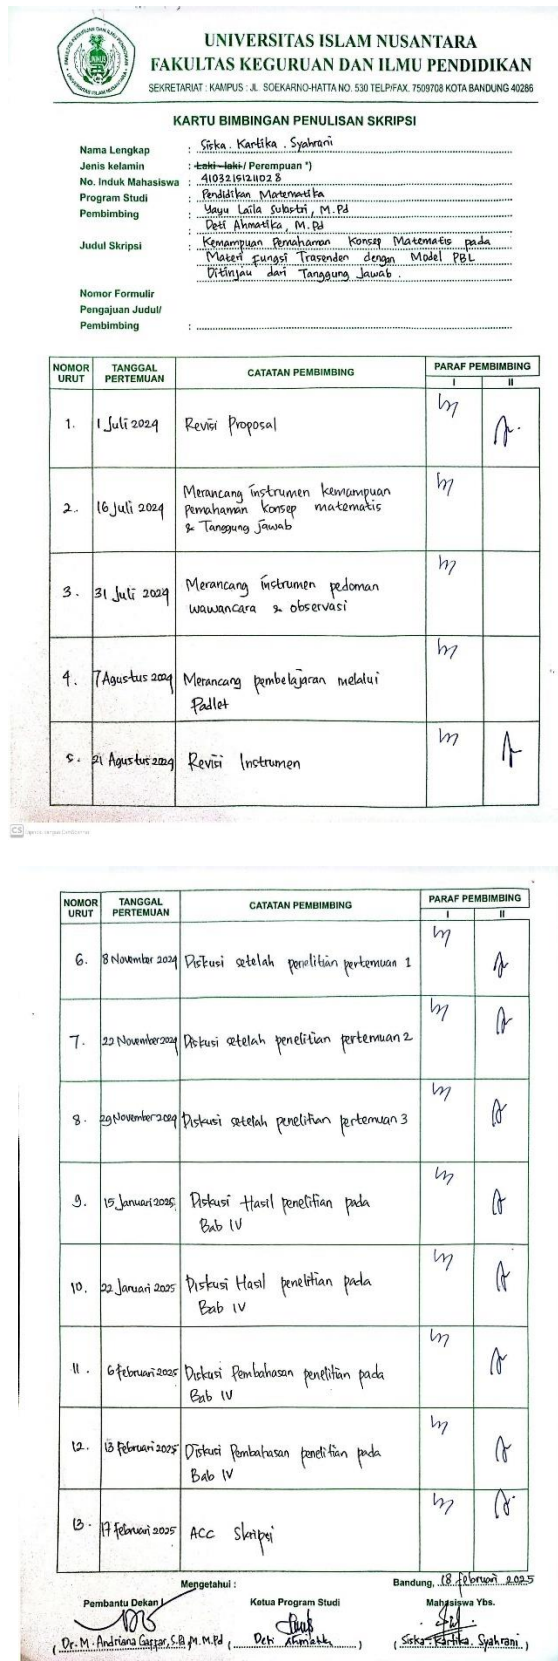 UNIVERSITAS ISLAM NUSANTARA
FAKULTAS KEGURUAN DAN ILMU PENDIDIKAN
SEKRETARIAT : KAMPUS : JL. SOEKARNO-HATTA NO. 530 TELP/FAX. 7509708 KOTA BANDUNG 40286
KARTU BIMBINGAN PENULISAN SKRIPSI
Nama Lengkap : Siska Kartika Syahrani
Jenis kelamin : Laki - laki / Perempuan *)
No. Induk Mahasiswa : 41032151211028
Program Studi : Pendidikan Matematika
Pembimbing : Yayu Laila Sulastri, M.Pd
: Deti Ahmatika, M.Pd
Judul Skripsi : Kemampuan Pemahaman Konsep Matematis pada
Materi Fungsi Trasenden dengan Model PBL
Ditinjau dari Tanggung Jawab.
Nomor Formulir
Pengajuan Judul/
Pembimbing :
NOMOR URUT TANGGAL PERTEMUAN CATATAN PEMBIMBING PARAF PEMBIMBING
I II
1. 1 Juli 2024 Revisi Proposal
2. 16 Juli 2024 Merancang instrumen kemampuan
pemahaman konsep matematis
& Tanggung jawab
3. 31 Juli 2024 Merancang instrumen pedoman
wawancara & observasi
4. 7 Agustus 2024 Merancang pembelajaran melalui
Padlet
5. 21 Agustus 2024 Revisi Instrumen
CS
NOMOR URUT TANGGAL PERTEMUAN CATATAN PEMBIMBING PARAF PEMBIMBING
I II
6. 8 November 2024 Diskusi setelah penelitian pertemuan 1
7. 22 November 2024 Diskusi setelah penelitian pertemuan 2
8. 29 November 2024 Diskusi setelah penelitian pertemuan 3
9. 15 Januari 2025 Diskusi Hasil penelitian pada
Bab IV
10. 22 Januari 2025 Diskusi Hasil penelitian pada
Bab IV
11. 6 Februari 2025 Diskusi Pembahasan penelitian pada
Bab IV
12. 13 Februari 2025 Diskusi Pembahasan penelitian pada
Bab IV
13. 17 Februari 2025 ACC Skripsi
Mengetahui : Bandung, 18 Februari 2025
Pembantu Dekan I Ketua Program Studi Mahasiswa Ybs.
( Dr. M. Andriana Gaffar, S.Pd., M.M.Pd ) ( Deti Ahmatika ) ( Siska Kartika Syahrani )